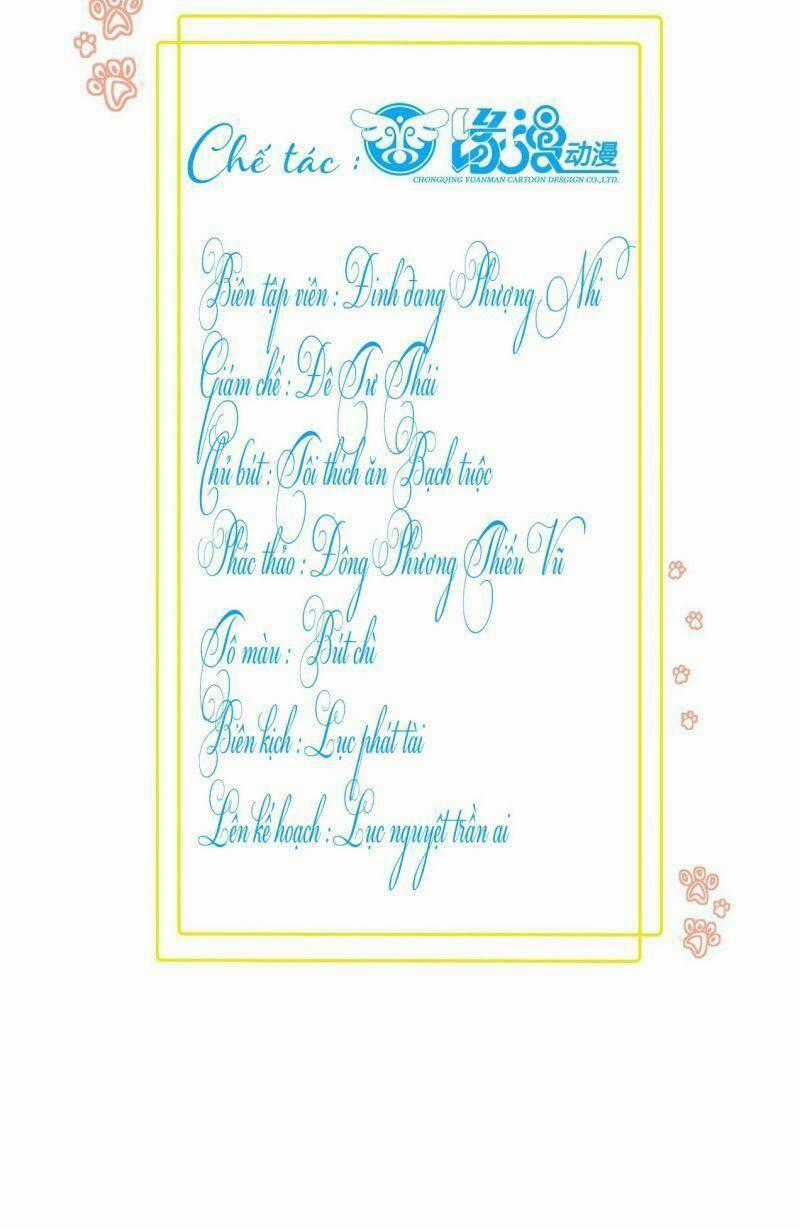 Chế tác : 缘漫动漫
CHONGQING YUANMAN CARTOON DESGIGN CO.,LTD.
Biên tập viên : Đinh đang Phượng Nhi
Giám chế : Đê Tư Thái
Chủ bút : Tôi thích ăn Bạch tuộc
Phác thảo : Đông Phương Thiếu Vũ
Tô màu : Bút chì
Biên kịch : Lục phát tài
Lên kế hoạch : Lục nguyệt trần ai